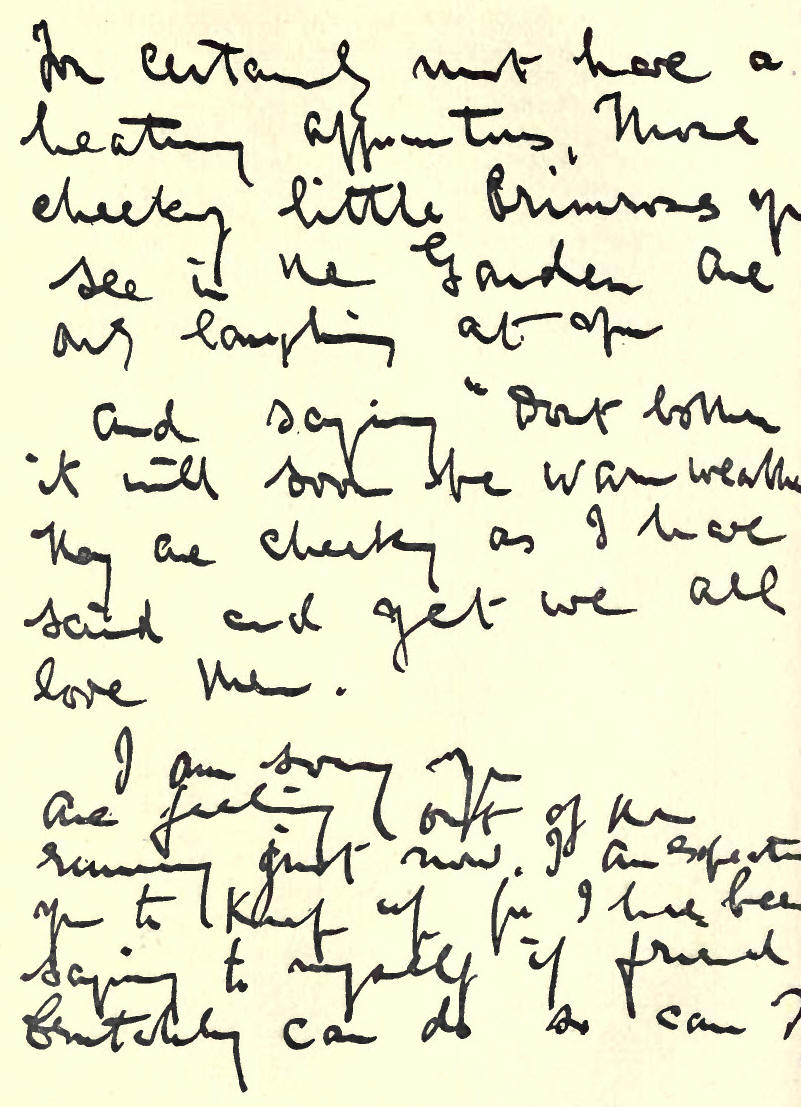 You certainly must have a
heating apparatus, Those
cheeky little Primroses you
see in the Garden are
only laughing at you
and saying "Dont bother
it will soon be warm weather
they are cheeky as I have
said and yet we all
love them.
I am sorry you
are feeling out of the
running just now. I am expecting
you to keep up for I have been
saying to myself if friend
can do so can I